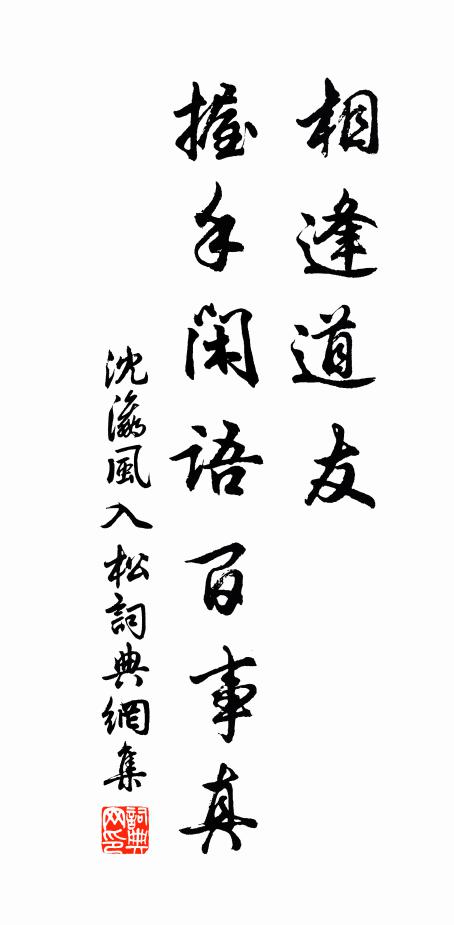 相逢道友
握手閑語百事真
沈瀛風入松詞典網集
詞典网印